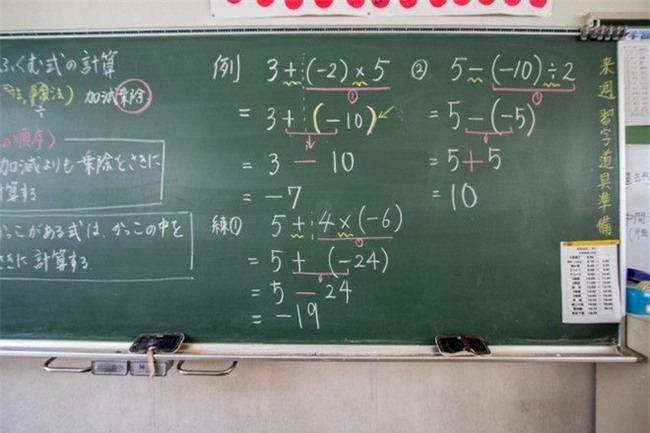 ふくむ式の計算
除法) 加減乗除
の順序〉
加減よりも乗除をさきに
計算する
かっこがある式は、かっこの中を
さきに計算する.
例 3+(-2)×5
①
= 3+(-10)
= 3 - 10
= -7
練① 5+4×(-6)
①
= 5+(-24)
= 5 - 24
= -19
② 5-(-10)÷2
①
= 5-(-5)
= 5+5
= 10
来週 習字道具準備